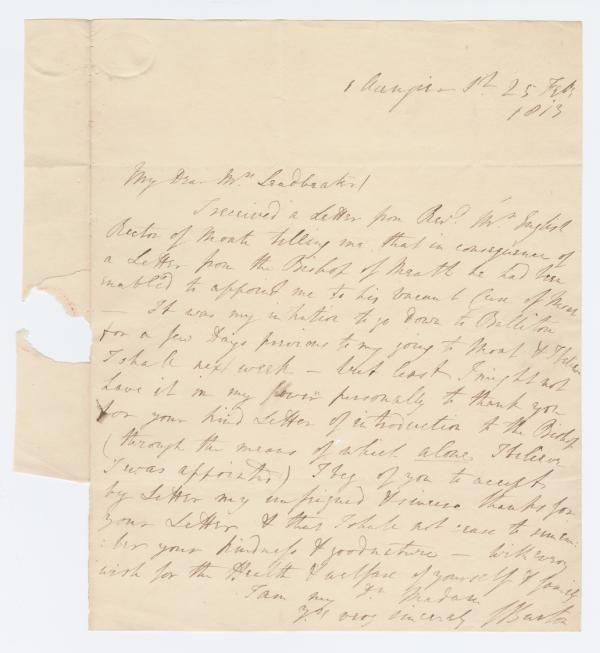 1 Aungier St. 25 Feb
1813
My Dear Mrs Leadbeater/
I received a Letter from Revd. Mr English
Rector of Moate telling me that in consequence of
a Letter from the Bishop of Meath he had been
enabled to appoint me to his vacant Cure of Moate
— It was my intention to go down to Balliton
for a few Days previous to my going to Moat & I believe
I shall next week — but least I might not
have it in my power personally to thank you
for your kind Letter of introduction to the Bishop
(through the means of which alone I believe
I was appointed) I beg of you to accept
by Letter my unfeigned & sincere thanks for
your Letter & that I shall not cease to remem-
:ber your kindness & goodnature — With every
wish for the Health & welfare of yourself & family
I am my Dr Madam
yrs very sincerely J Burton